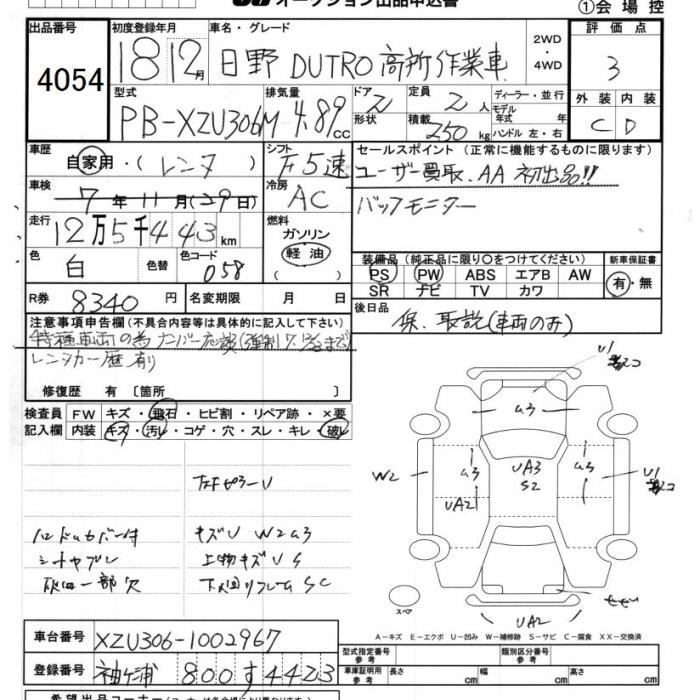 オークション出品申込書
①会場控
出品番号
4054
初度登録年月
18 12月
車名・グレード
日野 DUTRO 高所作業車
2WD
・
4WD
評価点
3
型式
PB-XZU306M
排気量
4.89cc
ドア 2
形状
定員 2人
積載 250kg
ディーラー・並行
モデル
年式 年
ハンドル 左・右
外装 内装
C D
車歴
自家用・(レンタ)
シフト
F5速
セールスポイント (正常に機能するものに限ります)
ユーザー買取、AA初出品!!
バックモニター
車検
7年11月(29日)
冷房
AC
走行
12万5千443km
燃料
ガソリン
軽油
( )
色
白
色替
色コード
058
装備品(純正品に限り○をつけてください)
PS PW ABS エアB AW
SR ナビ TV カワ
新車保証書
有・無
R券
8340円
名変期限 月 日
後日品
保、取説(車両のみ)
注意事項申告欄(不具合内容等は具体的に記入して下さい)
レンタカー歴有
修復歴 有〔箇所 〕
検査員
記入欄
FW キズ・飛石・ヒビ割・リペア跡・×要
内装 キズ・汚レ・コゲ・穴・スレ・キレ・破レ
ハンドルカバー付
キズU W2a3
シートヤブレ
上物キズUS
灰皿一部欠
下回リフレームSC
U1
a3
W2
a3
UA2
UA3
S2
a3
U1
UA2
スペア
A－キズ E－エクボ U－凹み W－補修跡 S－サビ C－腐食 XX－交換済
車台番号
XZU306-1002967
登録番号
袖ヶ浦 800す4423
型式指定番号
参考
類別区分番号
参考
車庫証明用
参考
長さ cm
幅 cm
高さ cm